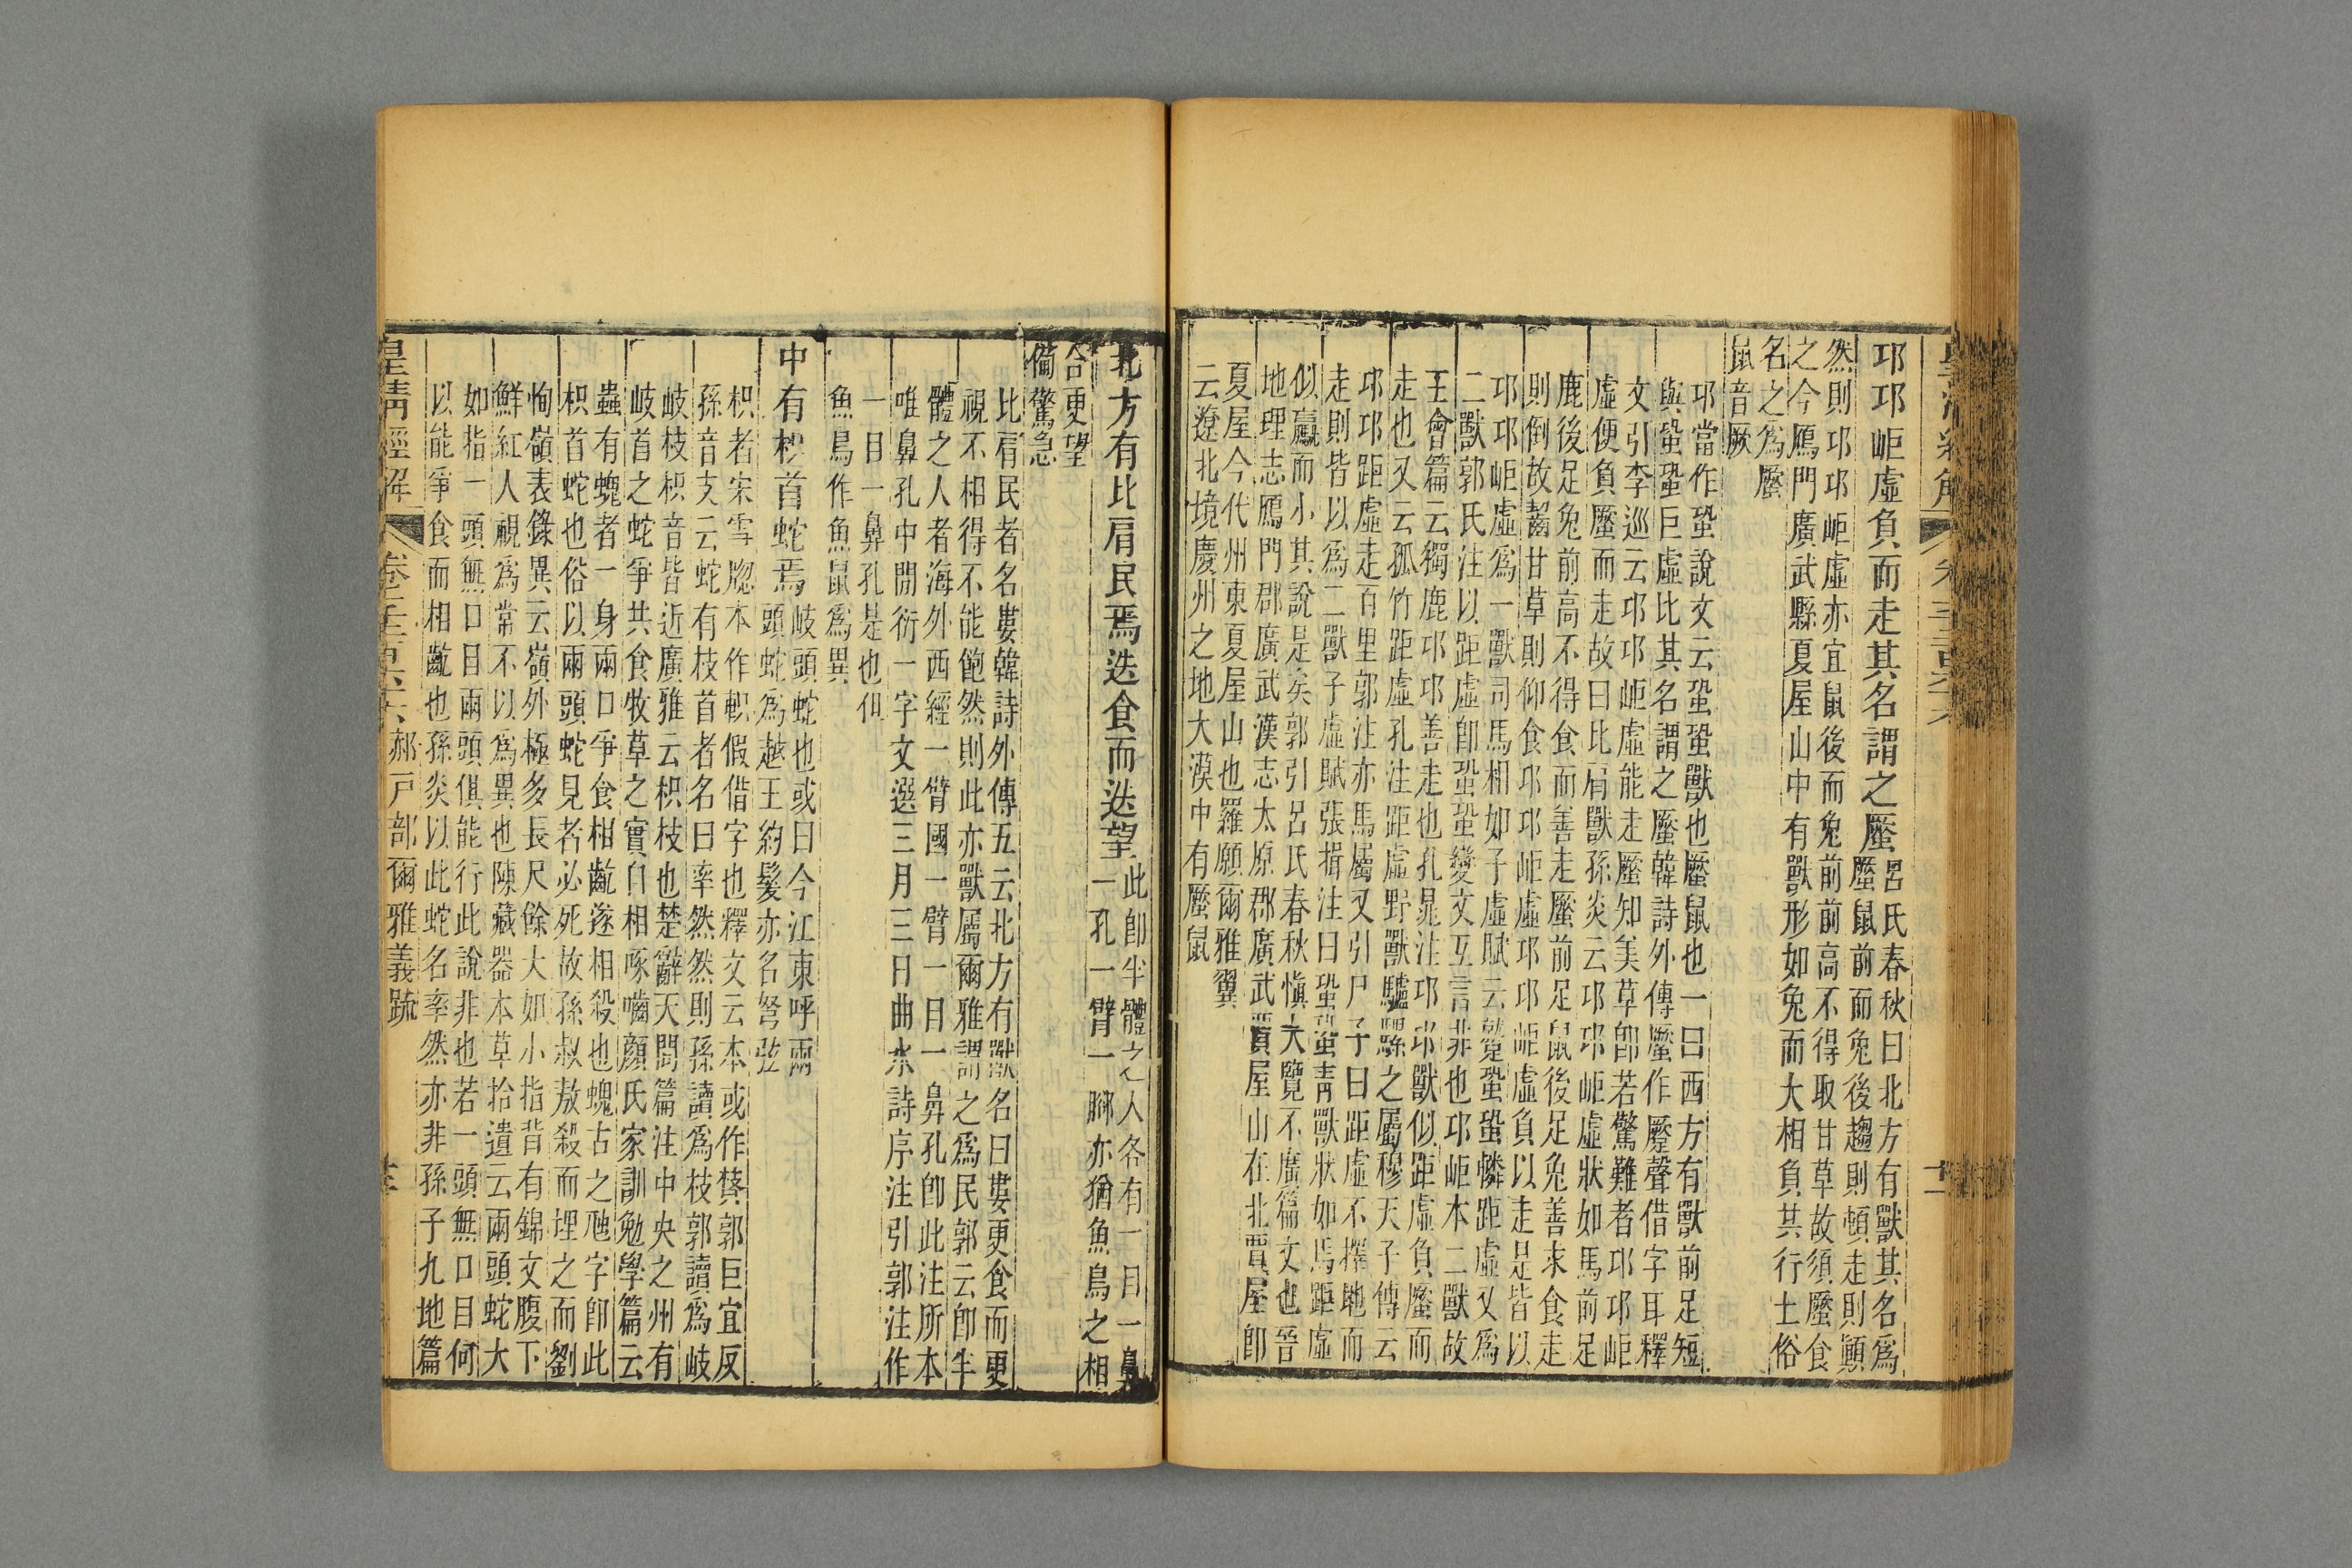 邛邛岠虛負而走其名謂之蟨呂氏春秋曰北方有獸其名爲
蟨鼠前而兔後趨則頓走則顚
然則邛邛岠虛亦宜鼠後而兔前前高不得取甘草故須蟨食
之今鴈門廣武縣夏屋山中有獸形如兔而大相負共行土俗
名之爲蟨
鼠音厥
邛當作蛩說文云蛩蛩獸也蟨鼠也一曰西方有獸前足短
與蛩蛩巨虛比其名謂之蟨韓詩外傳蟨作蟨聲借字耳釋
文引李巡云邛邛岠虛能走蟨知美草卽若驚難者邛邛岠
虛便負蟨而走故曰比肩獸孫炎云邛邛岠虛狀如馬前足
鹿後足兔前高不得食而善走蟨前足鼠後足兔善求食走
則倒故齧甘草則仰食邛邛岠虛邛邛岠虛負以走是皆以
邛邛岠虛爲一獸司馬相如子虛賦云蹵蛩蛩轔距虛又爲
二獸郭氏注以距虛卽蛩蛩變文互言非也邛岠本二獸故
王會篇云獨鹿邛邛善走也孔晁注邛邛獸似距虛負蟨而
走也又云孤竹距虛孔注距虛野獸驢騾之屬穆天子傳云
邛邛距虛走百里郭注亦馬屬又引尸子曰距虛不擇地而
走則皆以爲二獸子虛賦張揖注曰蛩蛩靑獸狀如馬距虛
似驘而小其說是矣郭引呂氏春秋愼大覽不廣篇文也晉
地理志鴈門郡廣武漢志太原郡廣武賈屋山在北賈屋卽
夏屋今代州東夏屋山也羅願爾雅翼
云遼北境慶州之地大漠中有蟨鼠
北方有比肩民焉迭食而迭望此卽半體之人各有一目一鼻
一孔一臂一腳亦猶魚鳥之相
合更望
備驚急
比肩民者名婁韓詩外傳五云北方有獸名曰婁更食而更
視不相得不能飽然則此亦獸屬爾雅謂之爲民郭云卽半
體之人者海外西經一臂國一臂一目一鼻孔卽此注所本
唯鼻孔中閒衍一字文選三月三日曲水詩序注引郭注作
一目一鼻孔是也但
魚鳥作魚鼠爲異
中有枳首蛇焉岐頭蛇也或曰今江東呼兩
頭蛇爲越王約髮亦名弩弦
枳者宋雪牕本作軹假借字也釋文云本或作䔲郭巨宜反
孫音支云蛇有枝首者名曰率然然則孫讀爲枝郭讀爲岐
岐枝枳音皆近廣雅云枳枝也楚辭天問篇注中央之州有
岐首之蛇爭共食牧草之實自相啄嚙顏氏家訓勉學篇云
蟲有螝者一身兩口爭食相齕遂相殺也螝古之虺字卽此
枳首蛇也俗以兩頭蛇見者必死故孫叔敖殺而埋之而劉
恂嶺表錄異云嶺外極多長尺餘大如小指背有錦文腹下
鮮紅人視爲常不以爲異也陳藏器本草拾遺云兩頭蛇大
如指一頭無口目兩頭俱能行此說非也若一頭無口目何
以能爭食而相齕也孫炎以此蛇名率然亦非孫子九地篇
皇淸經解 卷千二百六十六 郝戸部爾雅義疏